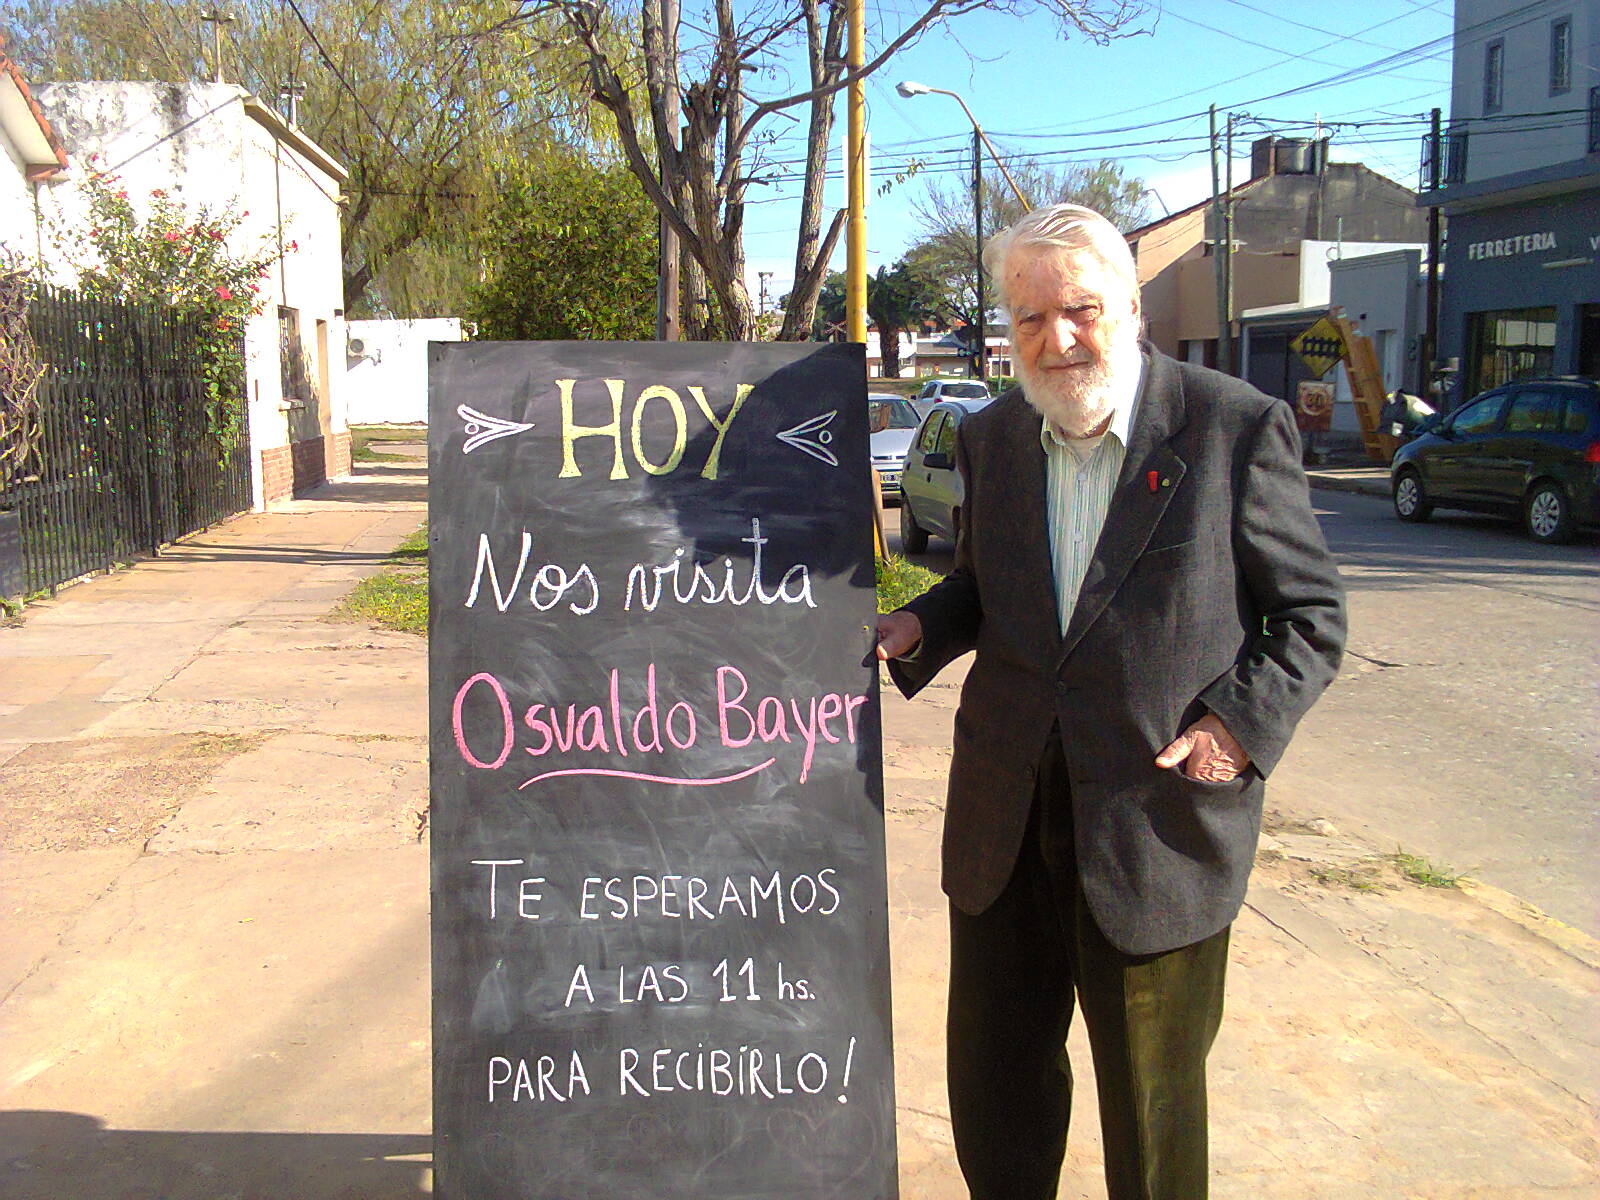 HOY
Nos visita
Osvaldo Bayer
TE ESPERAMOS
A LAS 11 hs.
PARA RECIBIRLO!
FERRETERIA
30